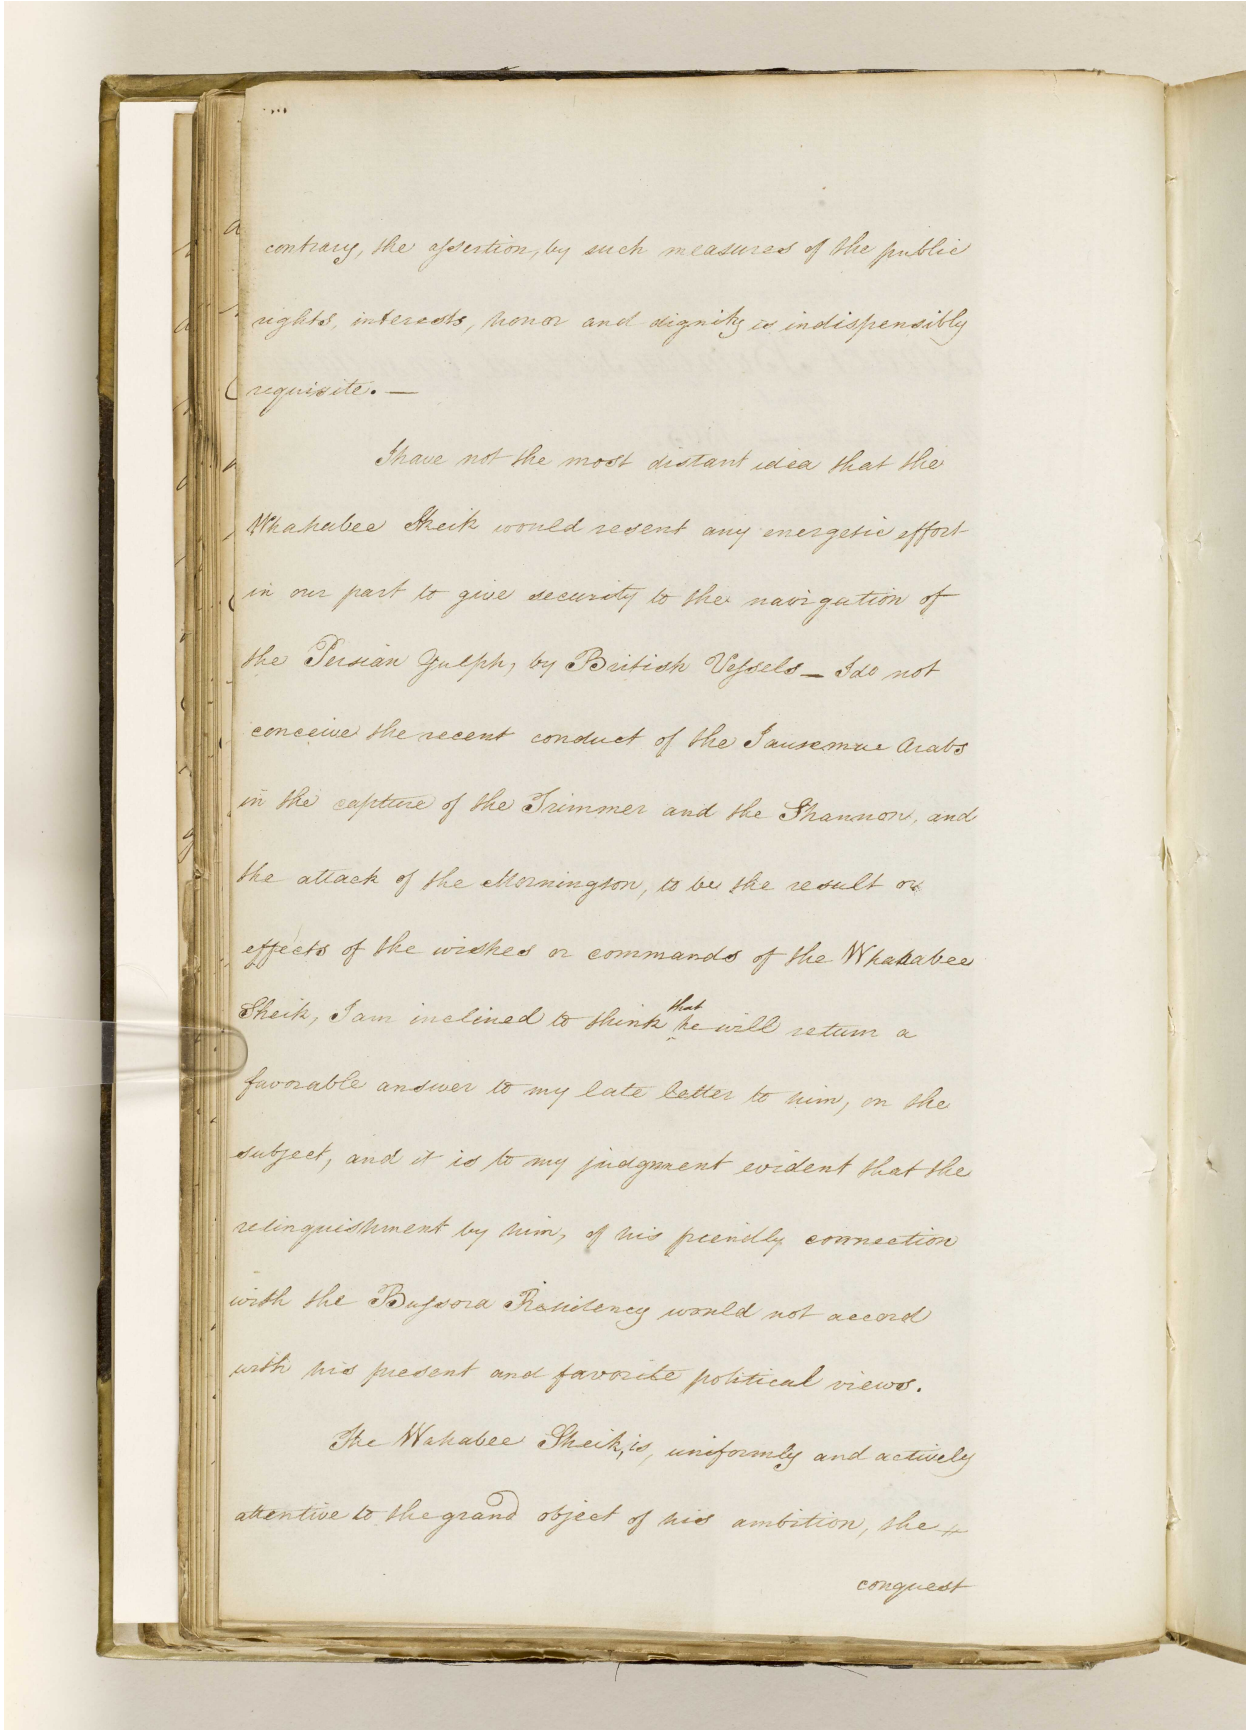 contrary, the assertion, by such measures of the public
rights, interests, honor and dignity is indispensibly
requisite. —
I have not the most distant idea that the
Whahabee Sheik would resent any energetic effort
in our part to give security to the navigation of
the Persian Gulph, by British Vessels — I do not
conceive the recent conduct of the Arabs
in the capture of the Trimmer and the Shannon, and
the attack of the Mornington, to be the result or
effects of the wishes or commands of the Whahabee
Sheik, I am inclined to think that he will return a
favorable answer to my late letter to him, on the
subject, and it is to my judgment evident that the
relinquishment by him, of his friendly connection
with the Bussora Residency would not accord
with his present and favorite political views.
The Wahabee Sheik, is, uniformly and actively
attentive to the grand object of his ambition, the
conquest